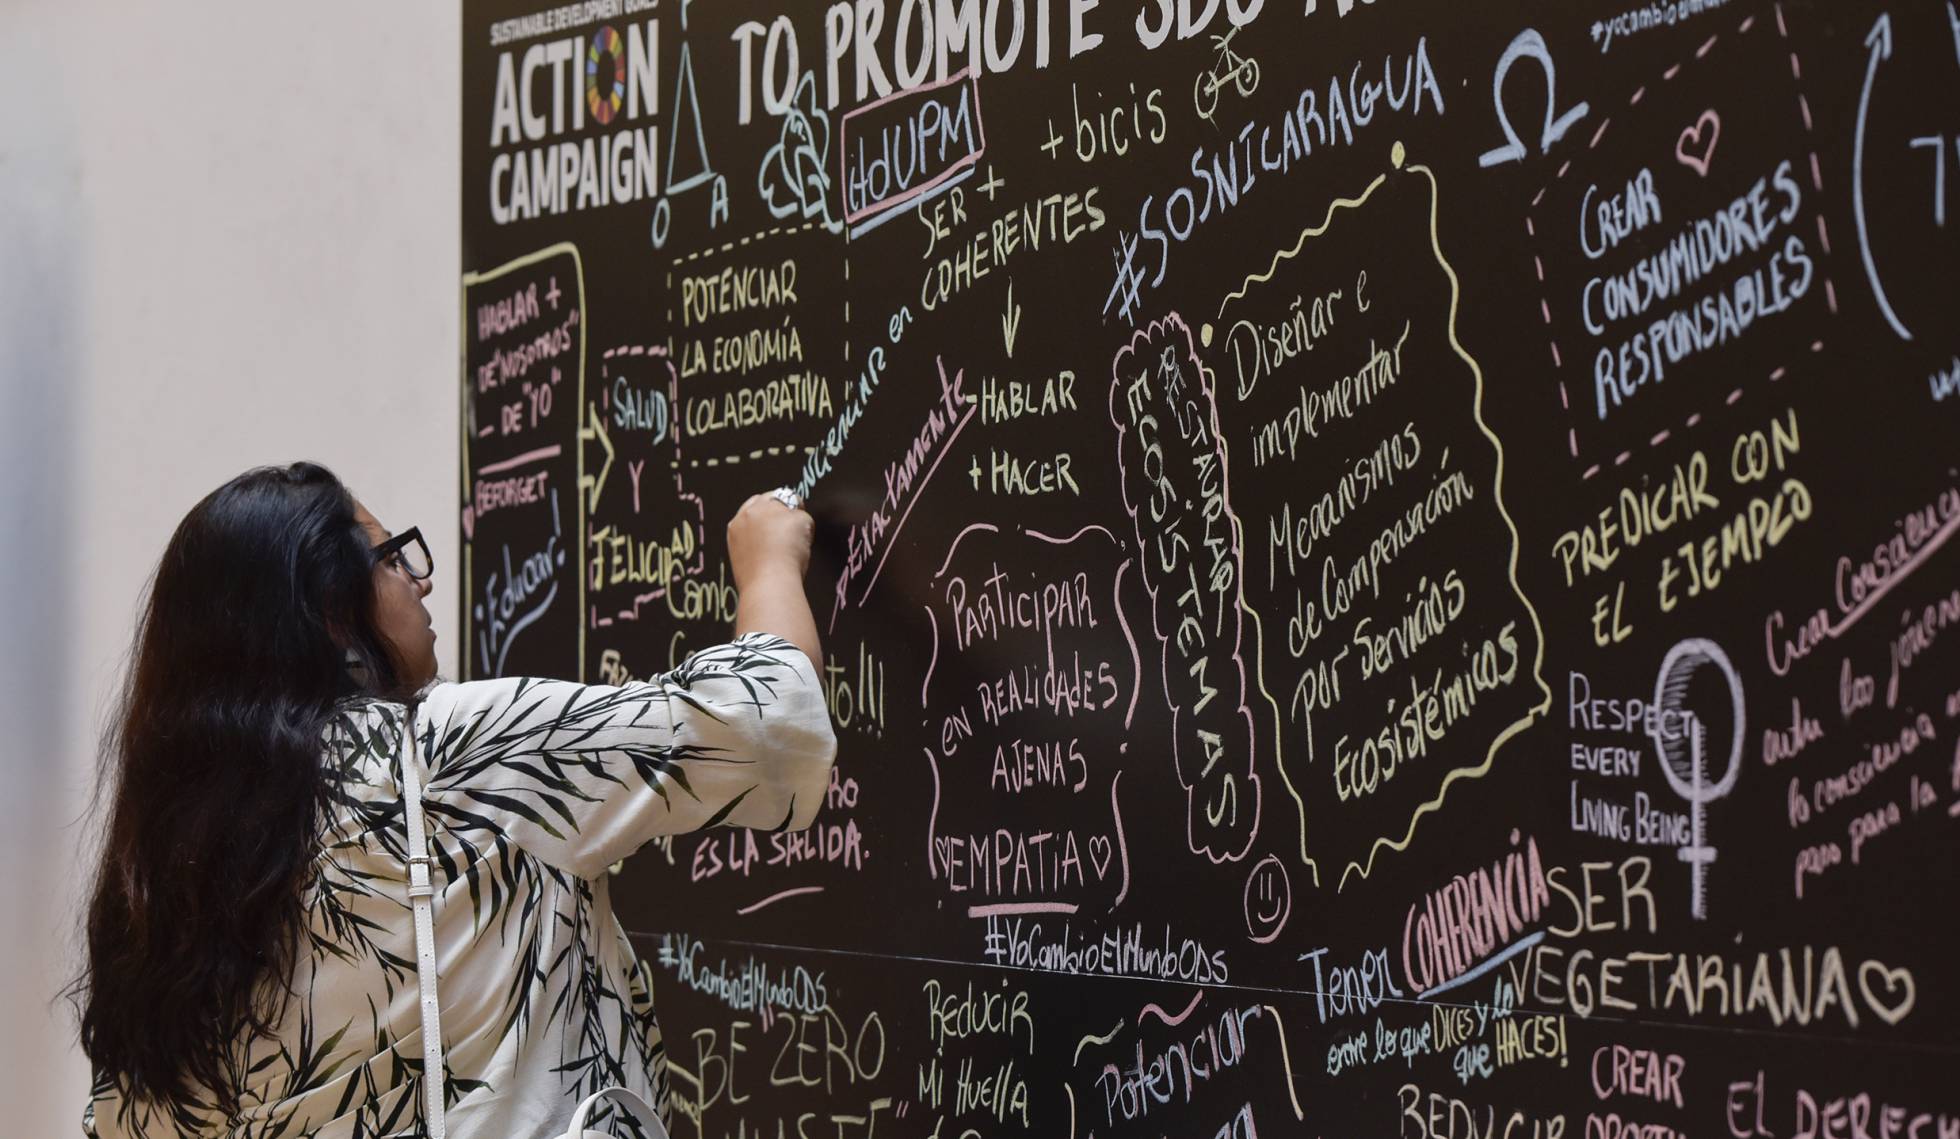 SUSTAINABLE DEVELOPMENT GOALS
ACTION
CAMPAIGN
TO PROMOTE SDG
O
A
itdUPM
+ bicis
#SOSNICARAGUA
SER +
COHERENTES
HABLAR
+ HACER
HABLAR +
DE "NOSOTROS"
- DE "YO"
BEFORGET
¡Educar!
SALUD
Y
FELICIDAD
POTENCIAR
LA ECONOMÍA
COLABORATIVA
en
EXACTAMENTE
ES LA SALIDA.
PARTICIPAR
EN REALIDADES
AJENAS
EMPATIA
#YoCambioElMundoODS
RESTAURAR
ECOSISTEMAS
Diseñar e
implementar
Mecanismos
de Compensación
por Servicios
Ecosistémicos
CREAR
CONSUMIDORES
RESPONSABLES
PREDICAR CON
EL EJEMPLO
RESPECT
EVERY
LIVING BEING
Crear Consciencia
entre los jóvenes
la consciencia
para la
Tener COHERENCIA
entre lo que DICES y lo
que HACES!
SER
VEGETARIANA
#YoCambioElMundoODS
BE "ZERO
REDUCIR
MI HUELLA
Potenciar
REDUCIR
CREAR
EL DERECH